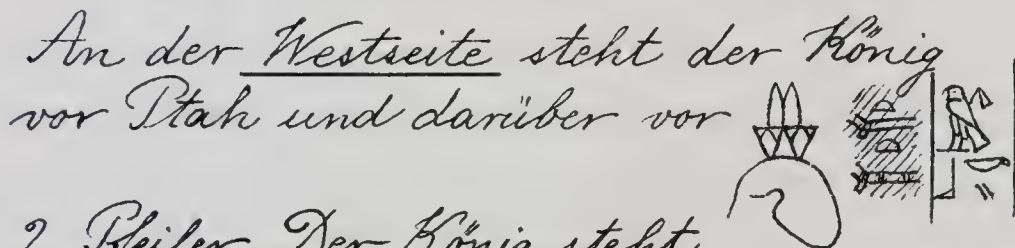 An der Westseite steht der König
vor Ptah und darüber vor
2. Pfeiler. Der König steht